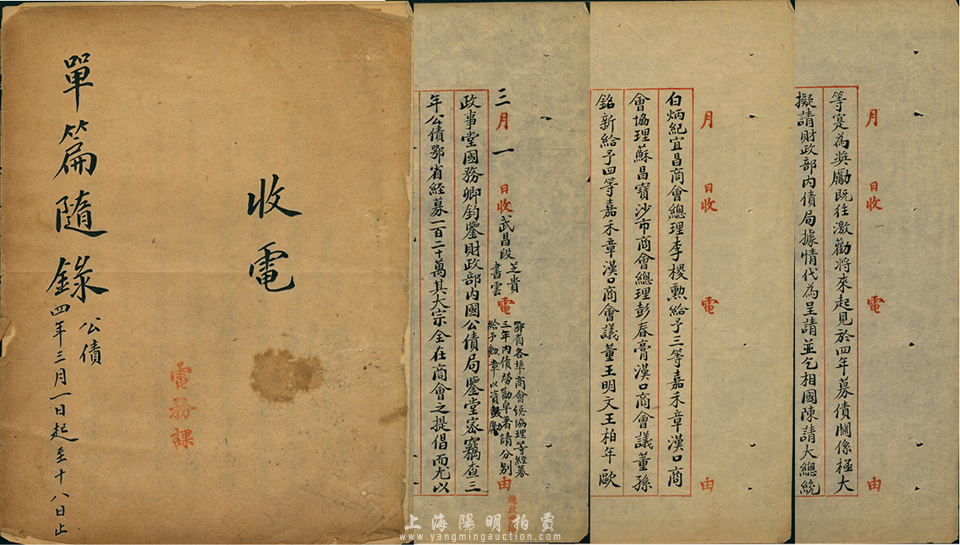 收電
單篇隨錄 公債 四年三月一日起至十八日止
電務課
三月一日收武昌段芝貴書雲電 鄂省各埠商會總協理等經募三年內債勞勩卓著請分別給予勳章以資鼓勵由
政事堂國務卿鈞鑒財政部內國公債局鑒堂密竊查三
年公債鄂省經募一百二十萬其大宗全在商會之提倡而尤以
月 日收 電 由
白炳紀宜昌商會總理李稷勳給予三等嘉禾章漢口商
會協理蘇昌寶沙市商會總理彭春膏漢口商會議董孫
銘新給予四等嘉禾章漢口商會議董王明文王柏年歐
月 日收 電 由
等寔為獎勵既往激勸將來起見於四年募債關係極大
擬請財政部內債局據情代為呈請並乞相國陳請大總統
上海陽明拍賣
www.yangmingauction.com